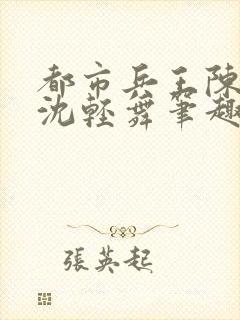 都市兵王陳
沈輕舞筆趣
張英起